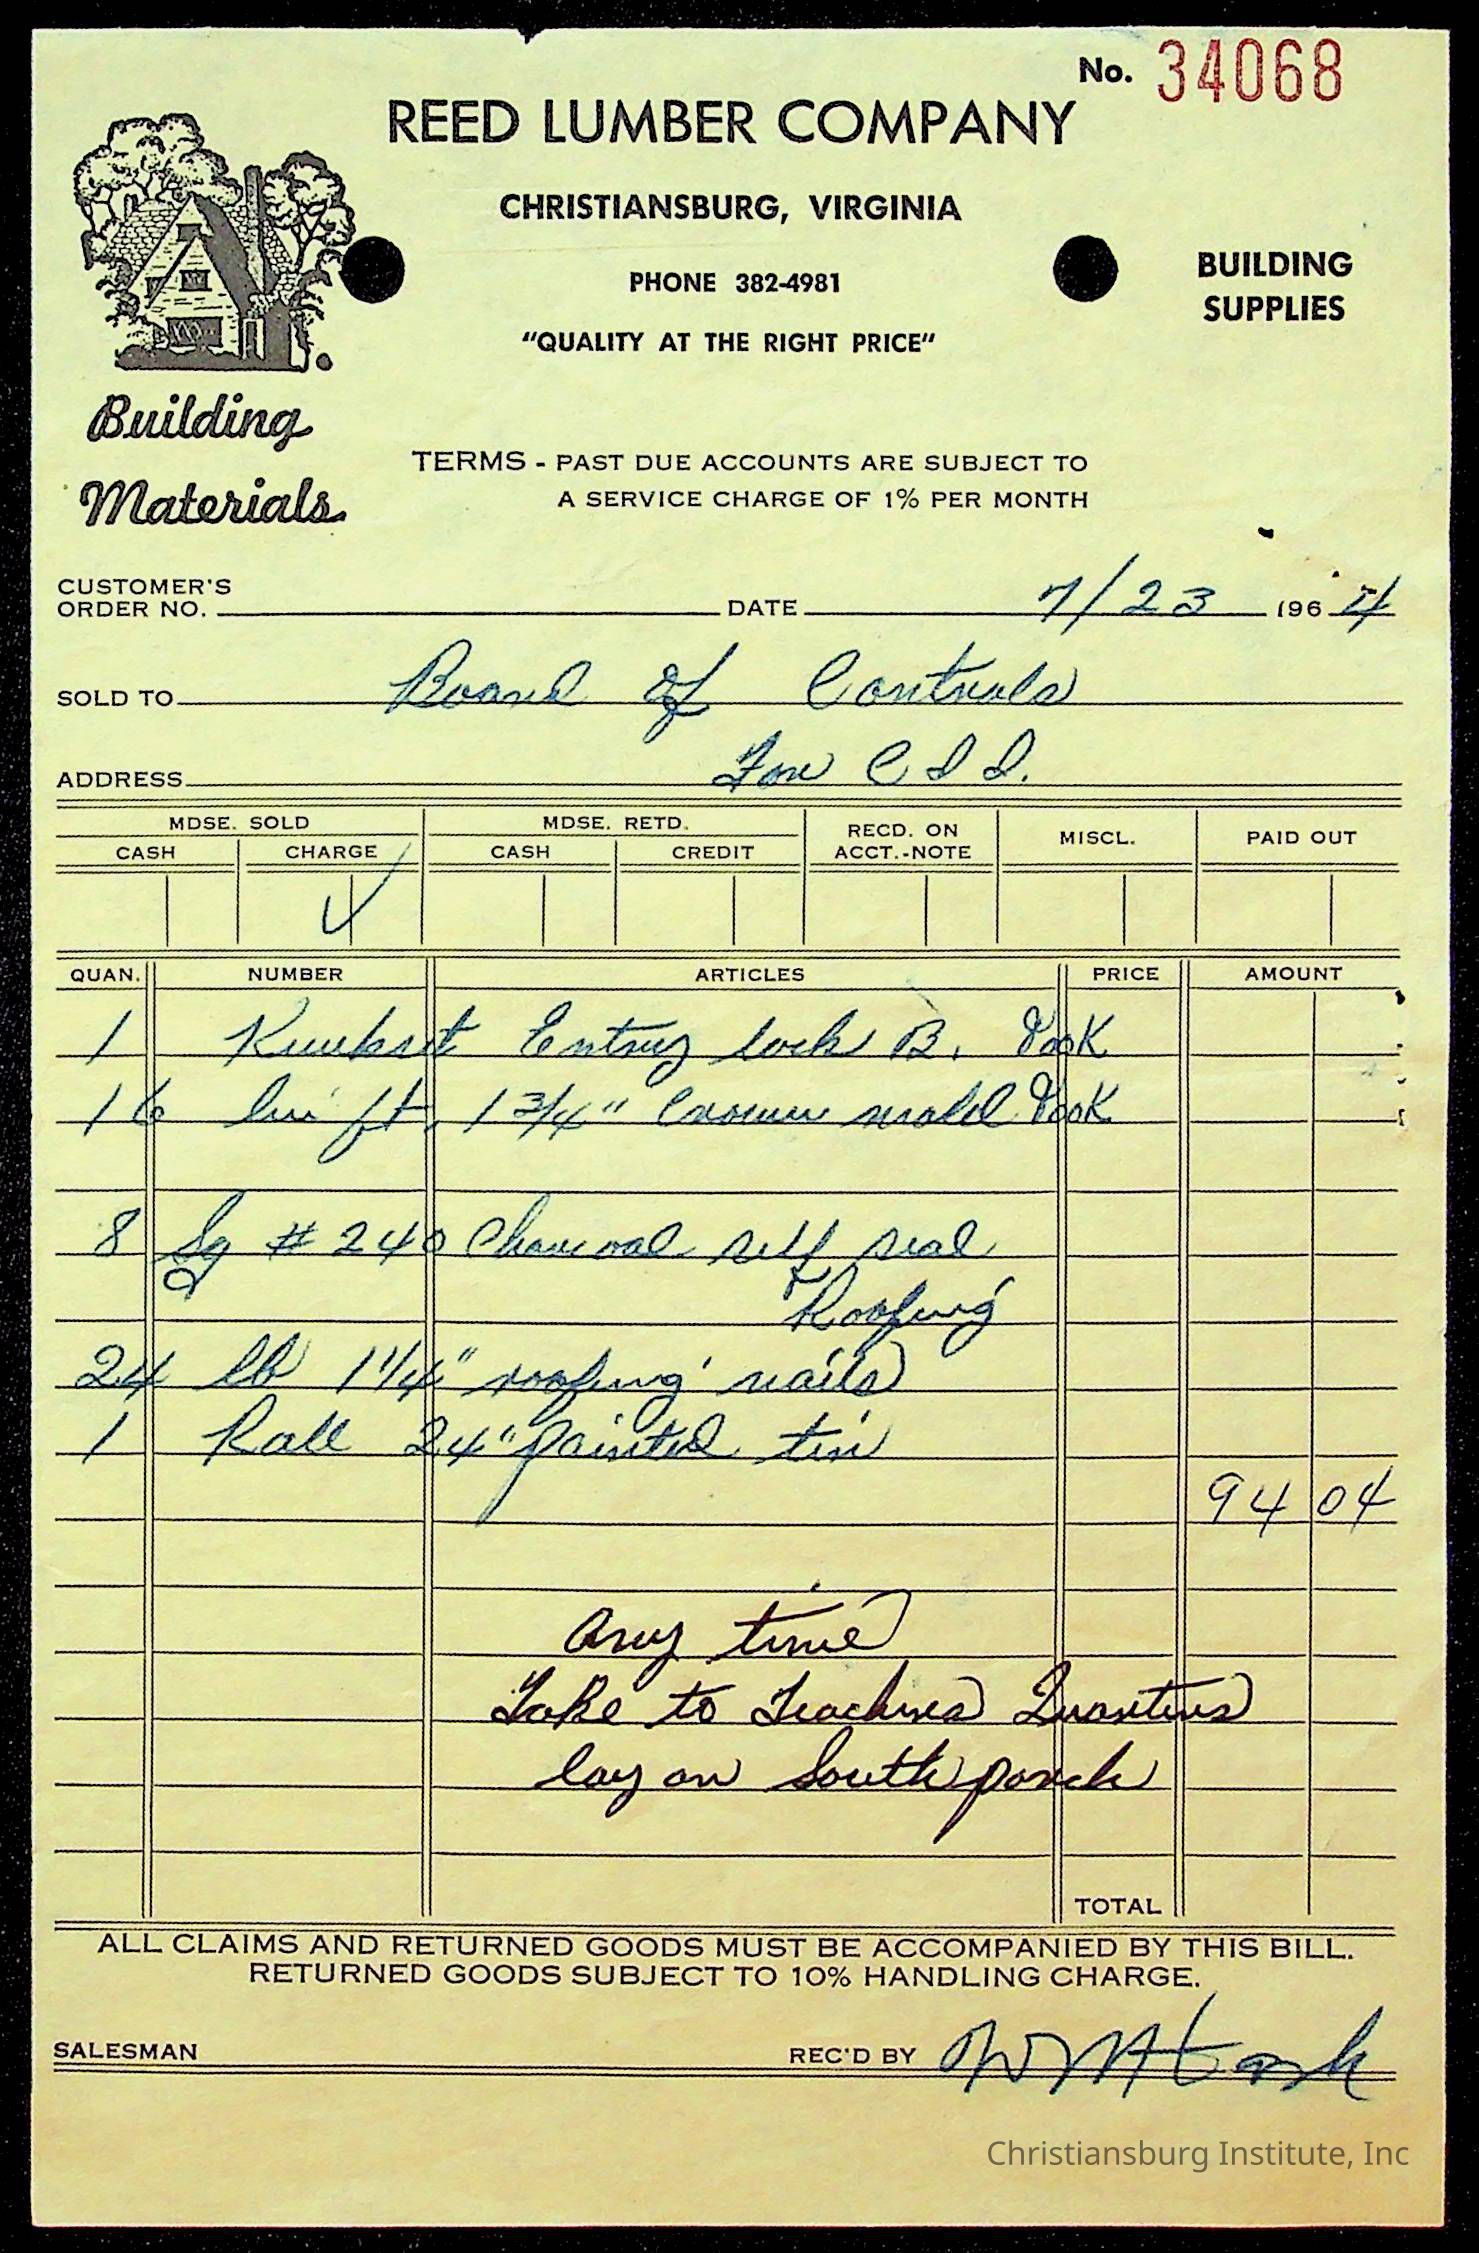 No. 34068
REED LUMBER COMPANY
CHRISTIANSBURG, VIRGINIA
PHONE 382-4981
"QUALITY AT THE RIGHT PRICE"
BUILDING
SUPPLIES
Building
Materials
TERMS - PAST DUE ACCOUNTS ARE SUBJECT TO
A SERVICE CHARGE OF 1% PER MONTH
CUSTOMER'S
ORDER NO. DATE 7/23 1964
SOLD TO Board of Controls
ADDRESS For C I I.
MDSE. SOLD MDSE. RETD. RECD. ON ACCT.-NOTE MISCL. PAID OUT
CASH CHARGE CASH CREDIT
✓
QUAN. NUMBER ARTICLES PRICE AMOUNT
1 Kwikset Entry lock B.
16 lin ft. 1 3/4" Crown mold
8 Sq # 240 Charcoal self seal
Roofing
24 lb 1 1/4" roofing nails
1 Roll 24" painted tin
94 04
Any time
Take to Teachers Quarters
lay on South porch
TOTAL
ALL CLAIMS AND RETURNED GOODS MUST BE ACCOMPANIED BY THIS BILL.
RETURNED GOODS SUBJECT TO 10% HANDLING CHARGE.
SALESMAN REC'D BY
Christiansburg Institute, Inc